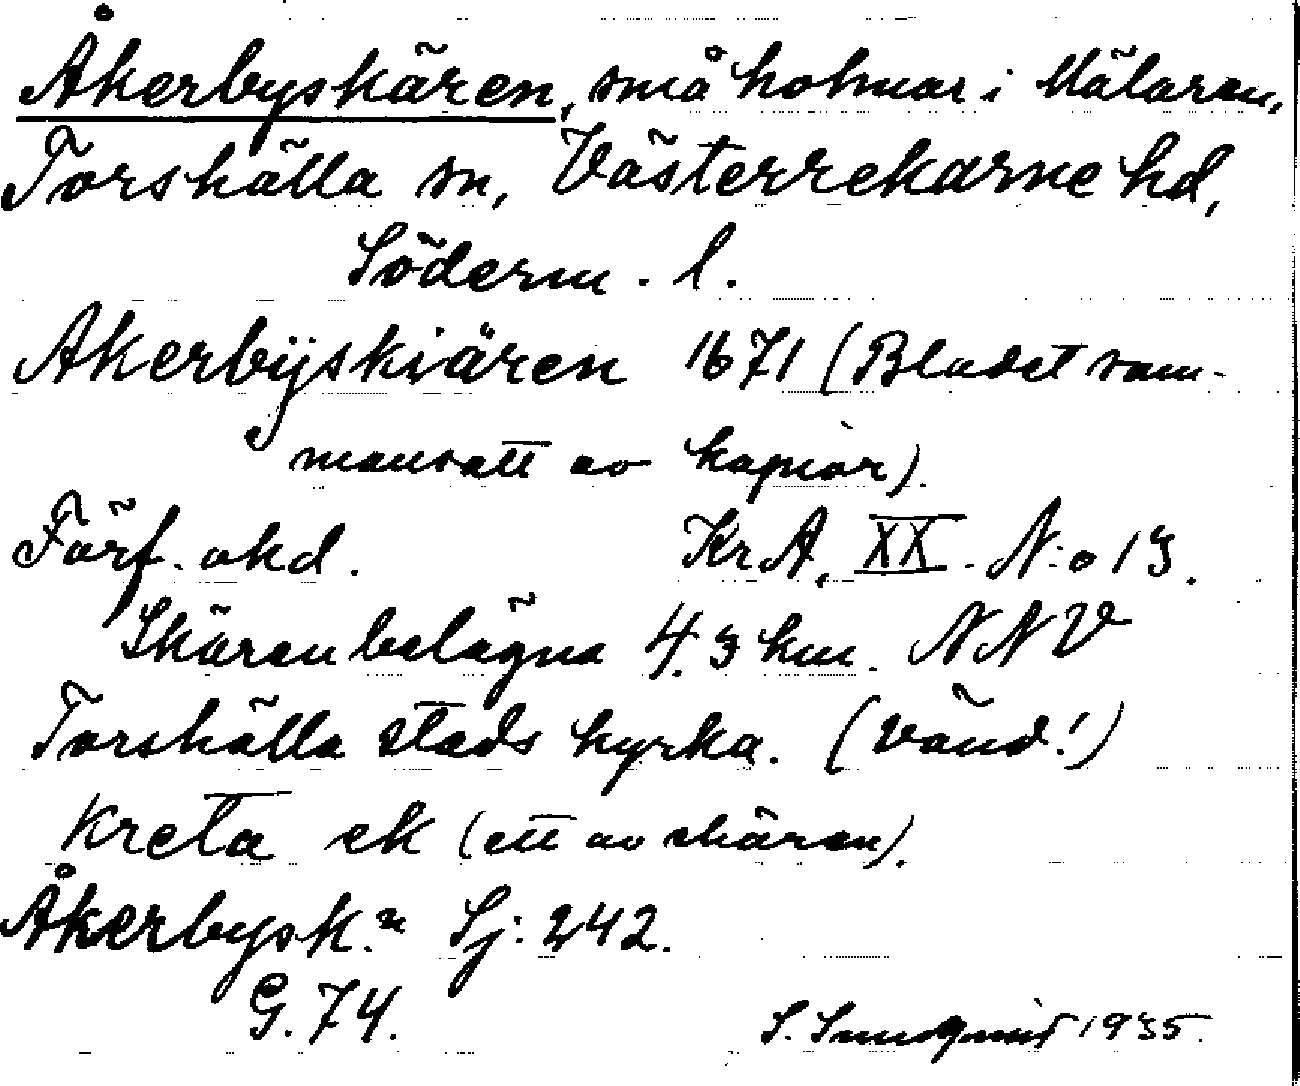 Åkerbyskären, små holmar i Mälaren,
Torshälla sn, Västerrekarne hd,
Söderm. l.
Akerbÿskiären 1671 (Bladet sam-
mansatt av kopior).
Förf. okd. KrA, XX. N:o 13.
Skären belägna 4.3 km. NNV
Torshälla stads kyrka. (Vänd!)
Kreta ek (ett av skären).
Åkerbysk:n Sj: 242.
G. 74.
S. Sundqvist 1935.